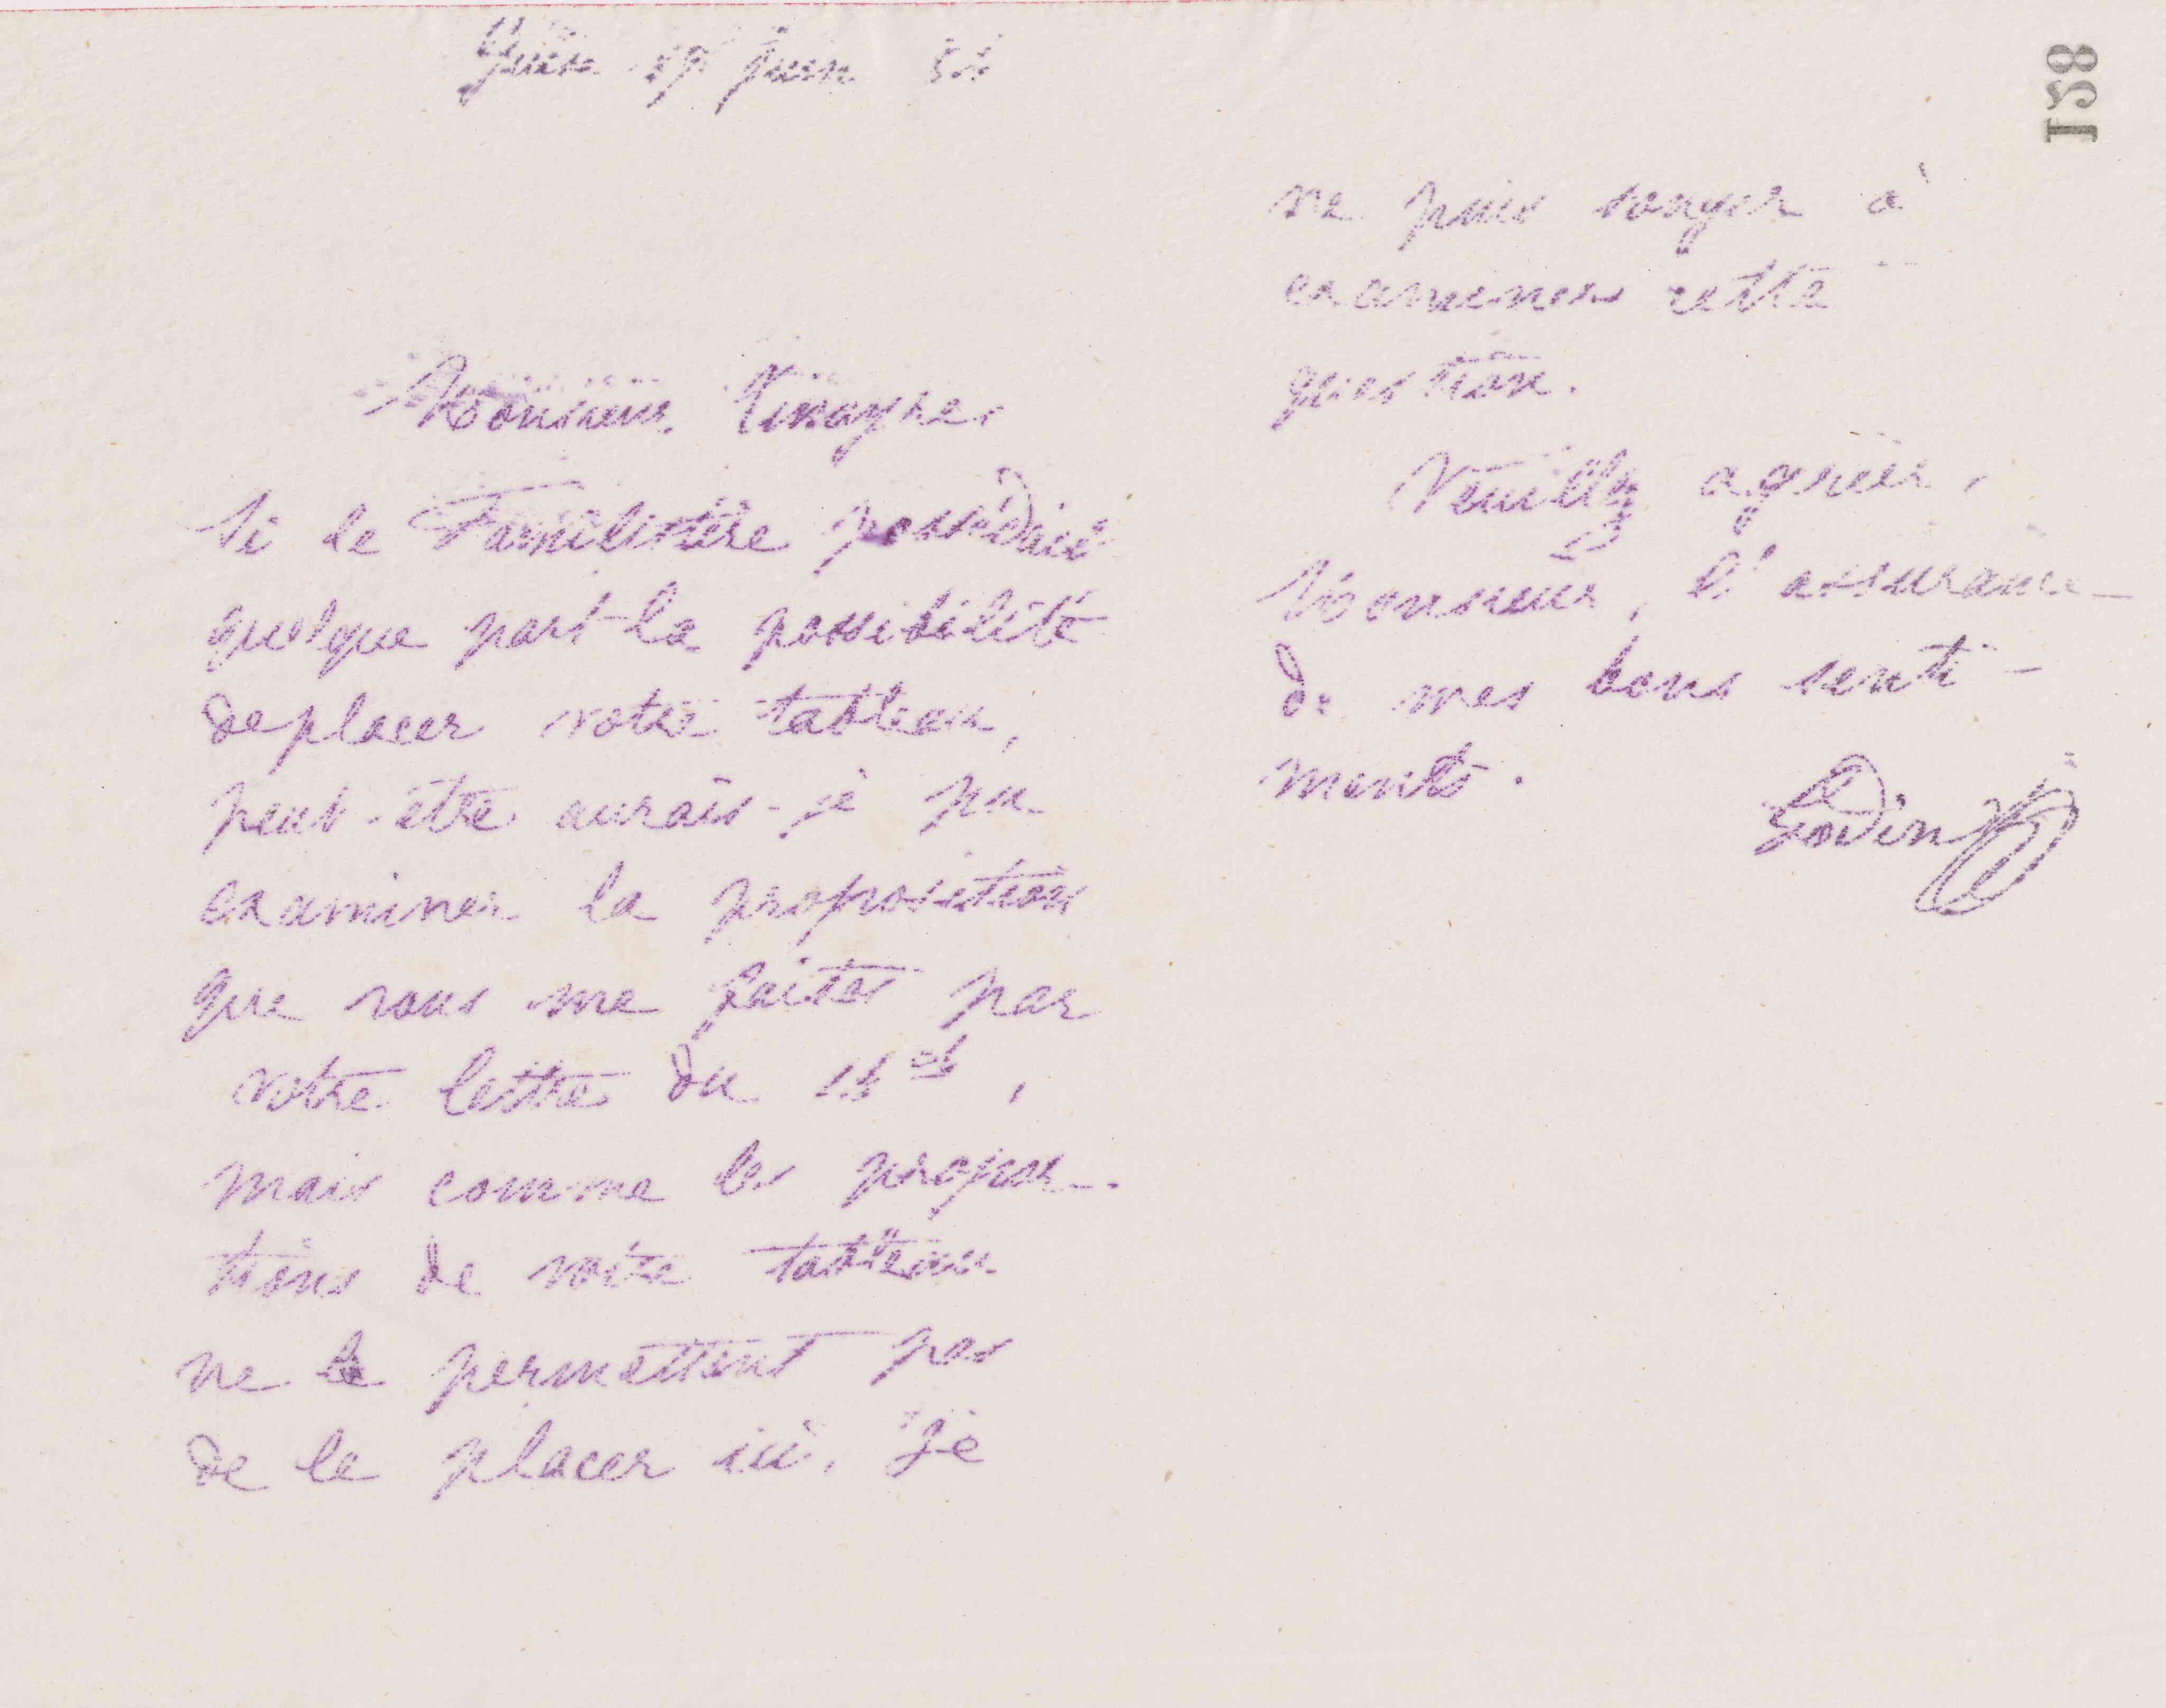 Guise juin
158
Monsieur Tinayre
Si le Familistère possédait
quelque part la possibilité
de placer votre tableau,
peut-être aurais-je pu
examiner la proposition
que vous me faites par
votre lettre du ,
mais comme les propor-
tions de votre tableau
ne le permettent pas
de le placer ici, je
ne puis songer à
examiner cette
question.
Veuillez agréer,
Monsieur, l'assurance
de mes bons senti-
ments.
Godin